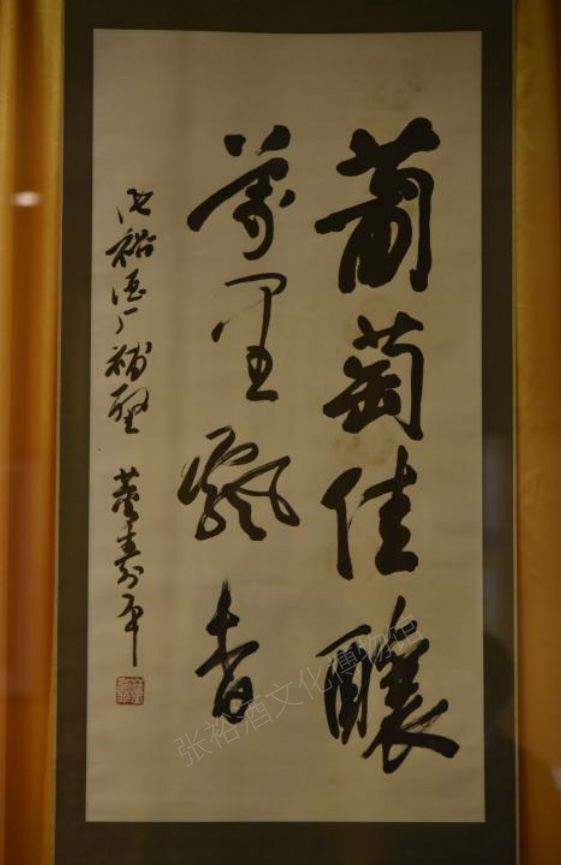 葡萄佳釀
萬里飄香
張裕酒厂補壁 董壽平
张裕酒文化博物馆